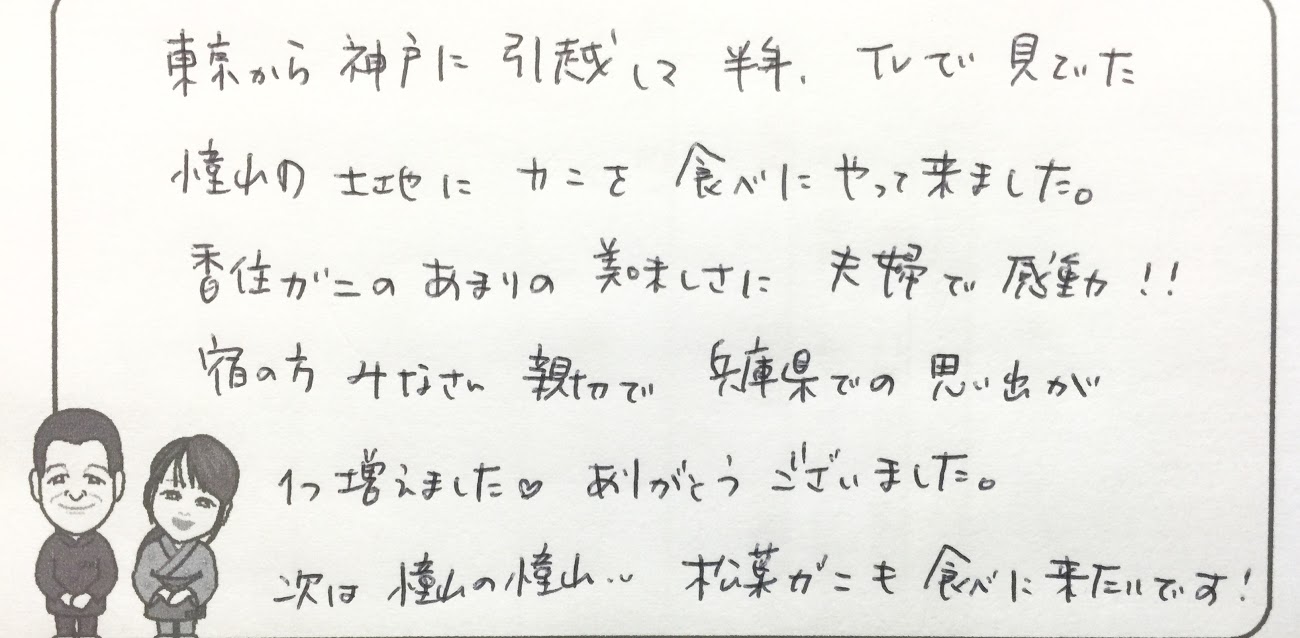 東京から神戸に引越して半年、TVで見ていた
憧れの土地にカニを食べにやって来ました。
香住ガニのあまりの美味しさに夫婦で感動!!
宿の方みなさん親切で兵庫県での思い出が
1つ増えました♡ ありがとうございました。
次は憧れの憧れ… 松葉ガニも食べに来たいです!